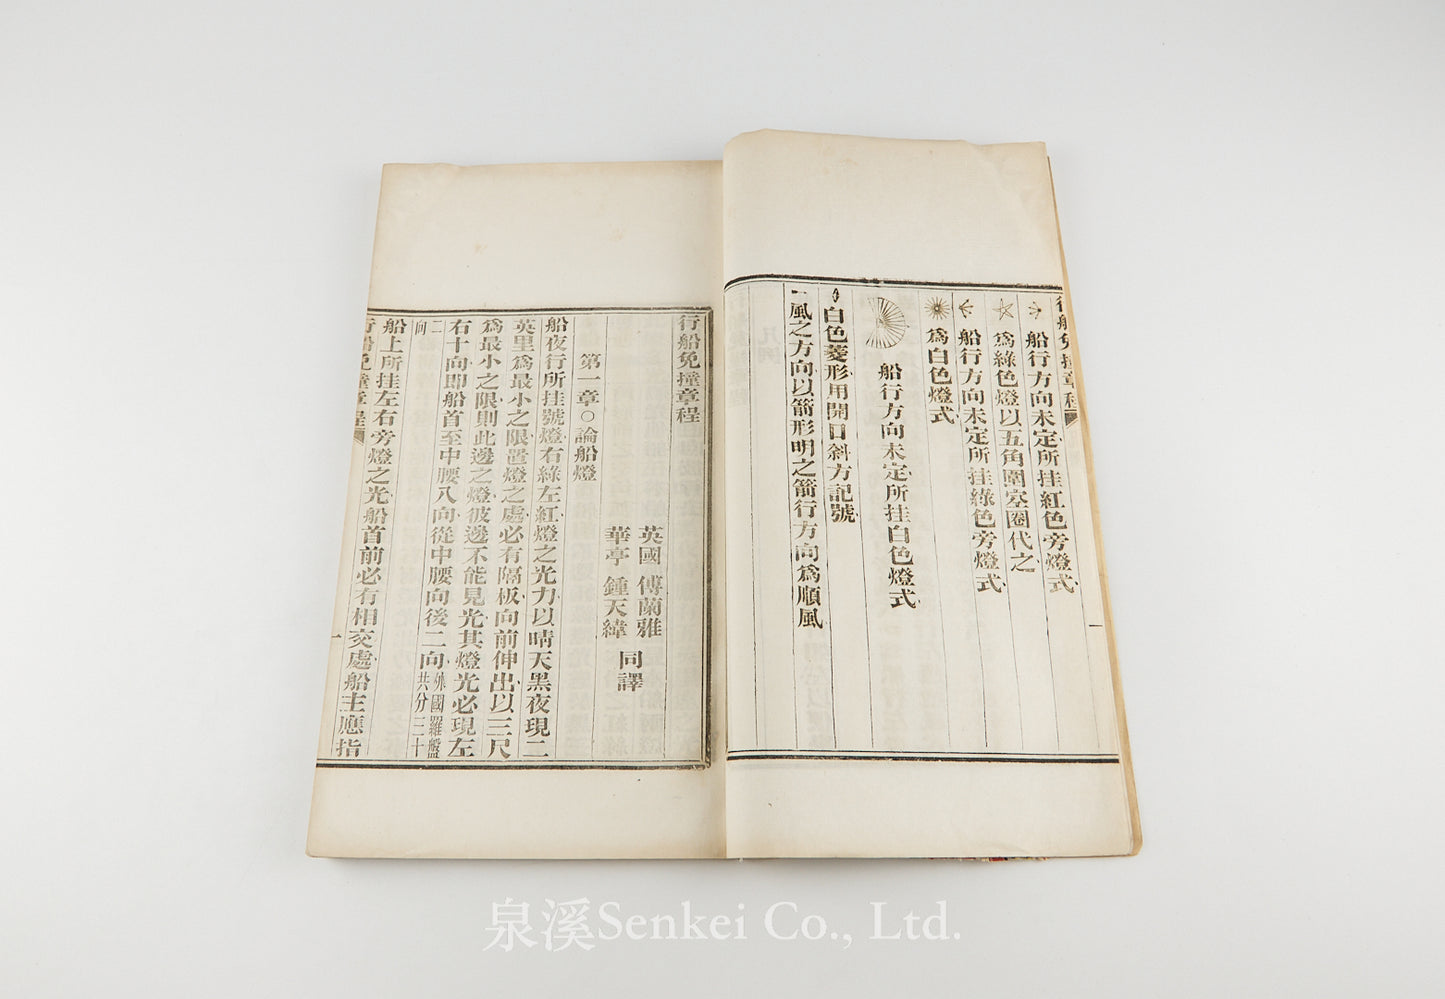 船行方向未定所挂紅色旁燈式
爲綠色燈以五角圍空圈代之
船行方向未定所挂綠色旁燈式
爲白色燈式
船行方向未定所挂白色燈式
白色菱形用開口斜方記號
一風之方向以箭形明之箭行方向爲順風
行船免撞章程
一
行船免撞章程
英國 傅蘭雅
華亭 鍾天緯
同譯
第一章○論船燈
船夜行所挂號燈右綠左紅燈之光力以晴天黑夜現二
英里爲最小之限置燈之處必有隔板向前伸出以三尺
爲最小之限則此邊之燈彼邊不能見光其燈光必現左
右十向即船首至中腰八向從中腰向後二向外國羅盤共分三十二向
船上所挂左右旁燈之光船首前必有相交處船主應指
行船免撞章程
一
泉溪Senkei Co., Ltd.